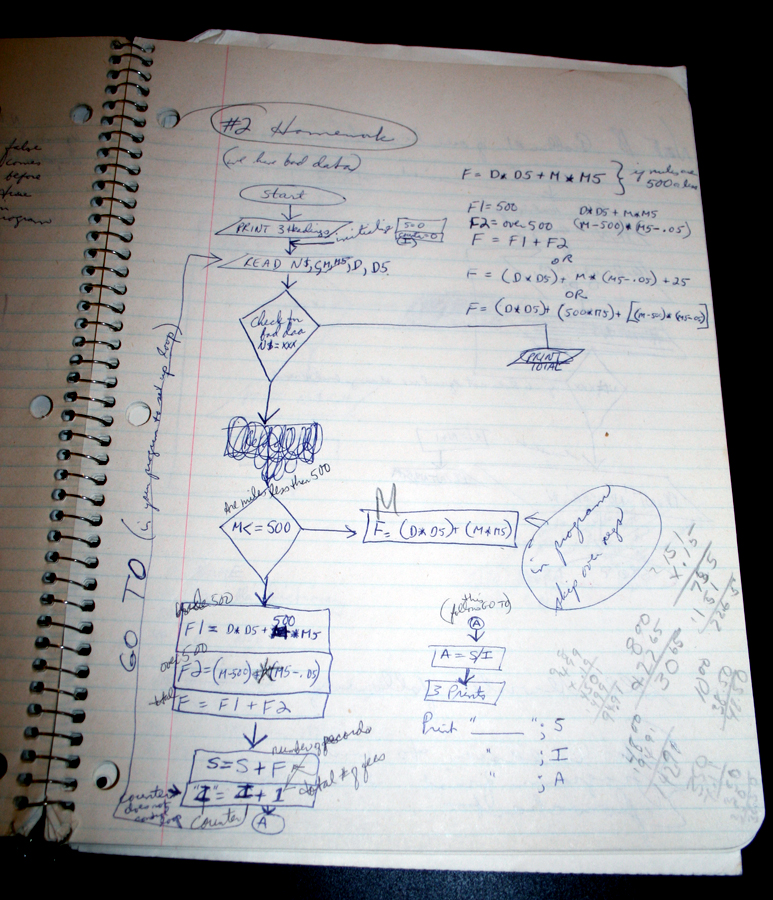 false
comes
before
true
program
#2 Homework
(we have bad data)
Start
PRINT 3 Headings
initialize
S=0
counter=0
(I)
READ N$, C, M, M5, D, D5
Check for
bad data
N$=XXX
PRINT
TOTAL
F = D* D5 + M * M5 } if miles are
500 or less
F1 = 500 D*D5 + M*M5
F2 = over 500 (M-500)*(M5-.05)
F = F1 + F2
OR
F = (D*D5) + M*(M5-.05) + 25
OR
F = (D*D5) + (500*M5) + [(M-500)*(M5-.05)]
are miles less than 500
M<=500
M
F = (D*D5) + (M*M5)
in program
skip over
under 500
500
F1 = D*D5 + *M5
over 500
F2 = (M-500)*(M5-.05)
total
F = F1 + F2
number of records
S = S + F
total # of fees
"I" = I + 1
counter
does not
counter
A
GO TO (in your program to set up loop)
this
(follows GO TO)
A
A = S/I
3 Prints
Print "______"; S
" ; I
" ; A